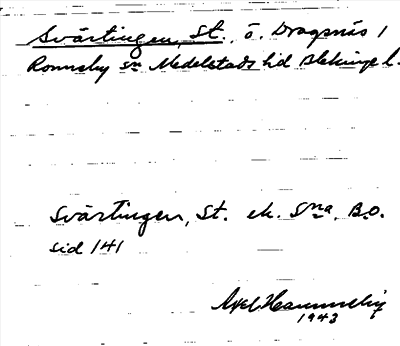 Svärtingen, St., ö. Dragsnäs i
Ronneby sn Medelstads hd Blekinge l.
Svärtingen, St. ek. Sna, B.O.
sid 141
Axel
1943